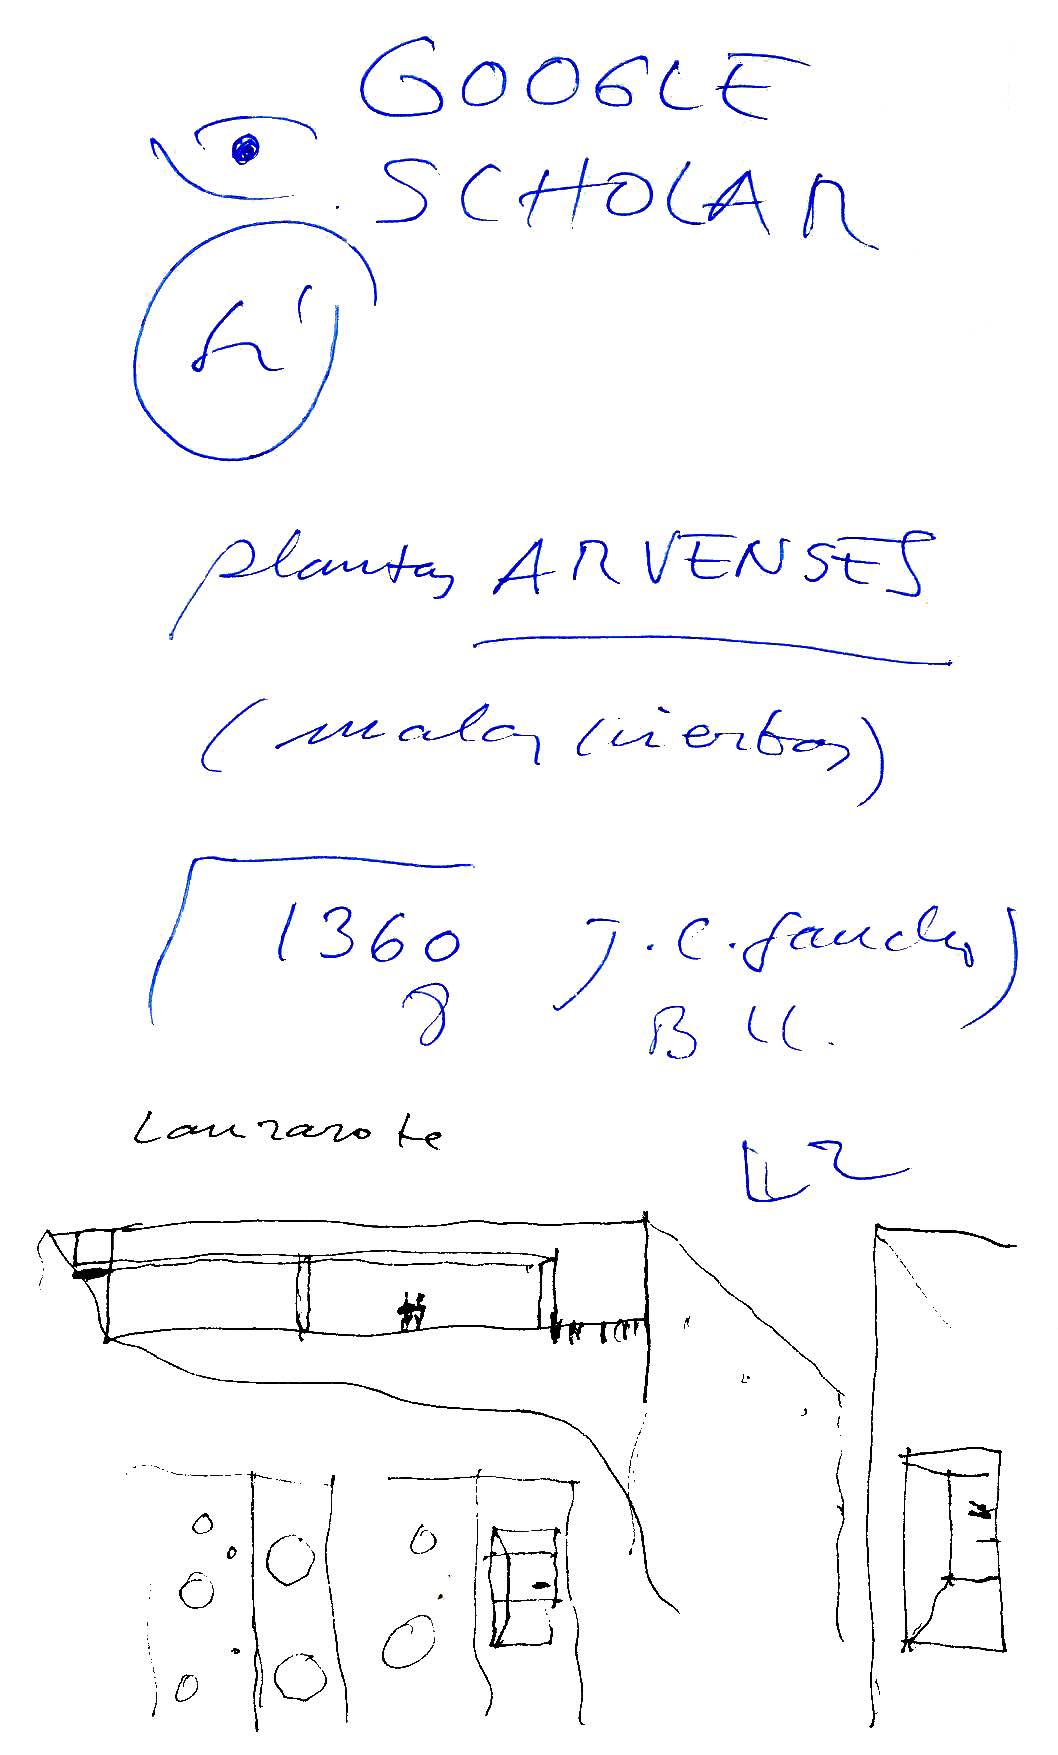 GOOGLE
SCHOLAR
plantas ARVENSES
(malas hierbas)
1360 J. C. Sanchs)
8 B
Lanzarote